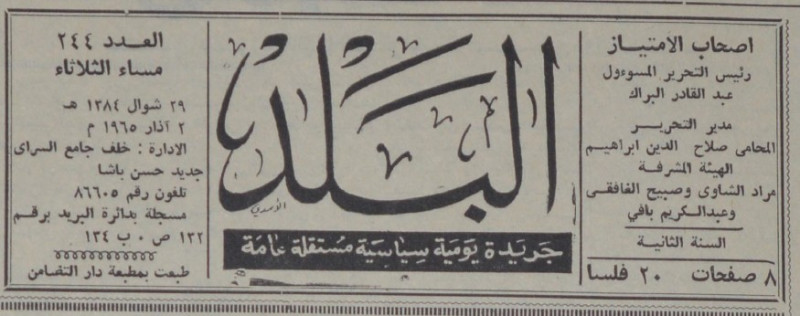 اصحاب الامتياز
رئيس التحرير المسوءول
عبد القادر البراك
مدير التحرير
المحامى صلاح الدين ابراهيم
الهيئة المشرفة
مراد الشاوى وصبيح الغافقى
وعبدالكريم بافي
السنة الثانية
٨ صفحات ٢٠ فلسا
البلد
جريدة يومية سياسية مستقلة عامة
العدد ٢٤٤
مساء الثلاثاء
٢٩ شوال ١٣٨٤ هـ
٢ آذار ١٩٦٥ م
الادارة : خلف جامع السراى
جديد حسن باشا
تلفون رقم ٨٦٦٠٥
مسجلة بدائرة البريد برقم
١٢٢ ص ٠ ب ١٣٤
طبعت بمطبعة دار التضامن